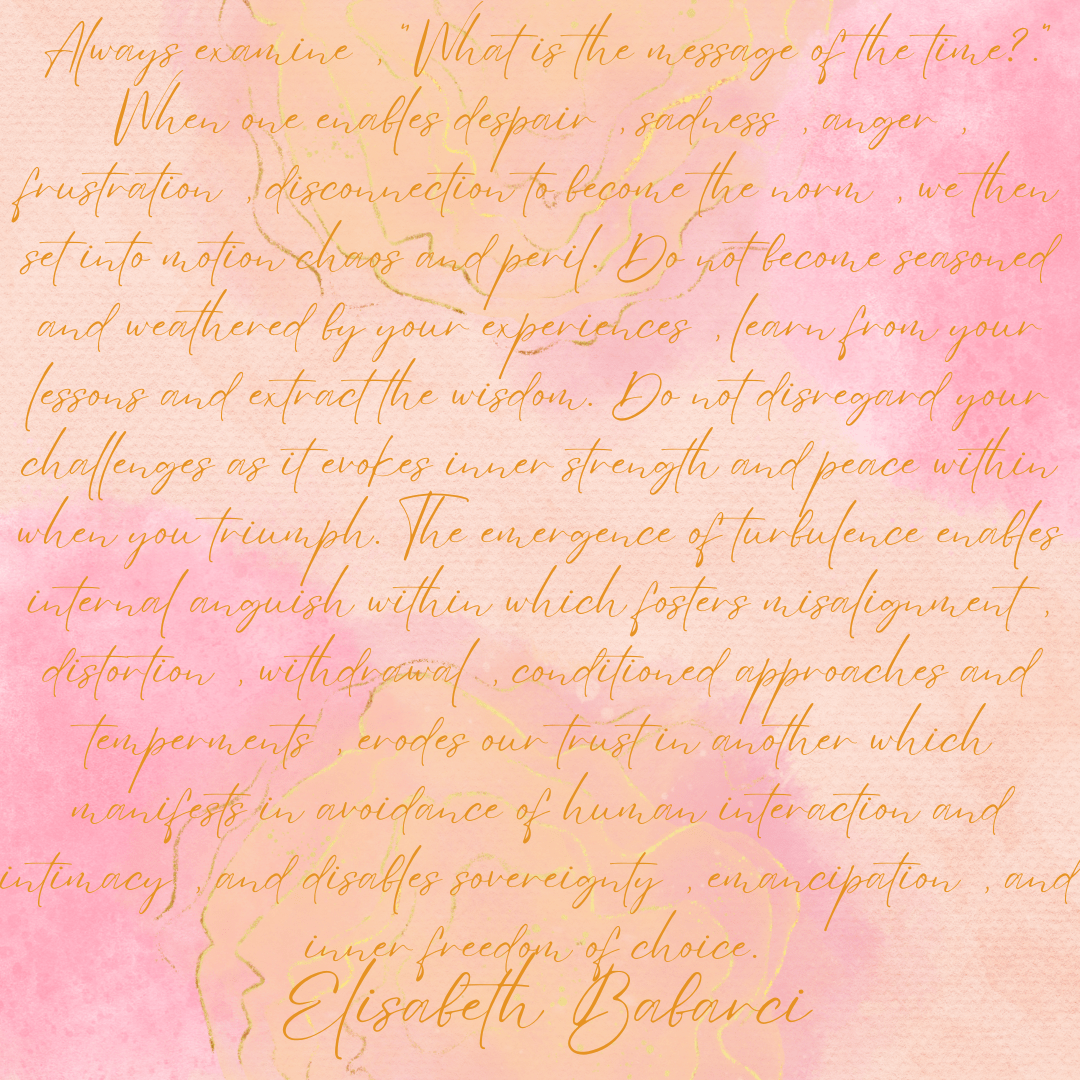 Always examine , "What is the message of the time?."
When one enables despair , sadness , anger ,
frustration , disconnection to become the norm , we then
set into motion chaos and peril. Do not become seasoned
and weathered by your experiences , learn from your
lessons and extract the wisdom. Do not disregard your
challenges as it evokes inner strength and peace within
when you triumph. The emergence of turbulence enables
internal anguish within which fosters misalignment ,
distortion , withdrawal , conditioned approaches and
temperments , erodes our trust in another which
manifests in avoidance of human interaction and
intimacy , and disables sovereignty , emancipation , and
inner freedom of choice.
Elisabeth Babarci